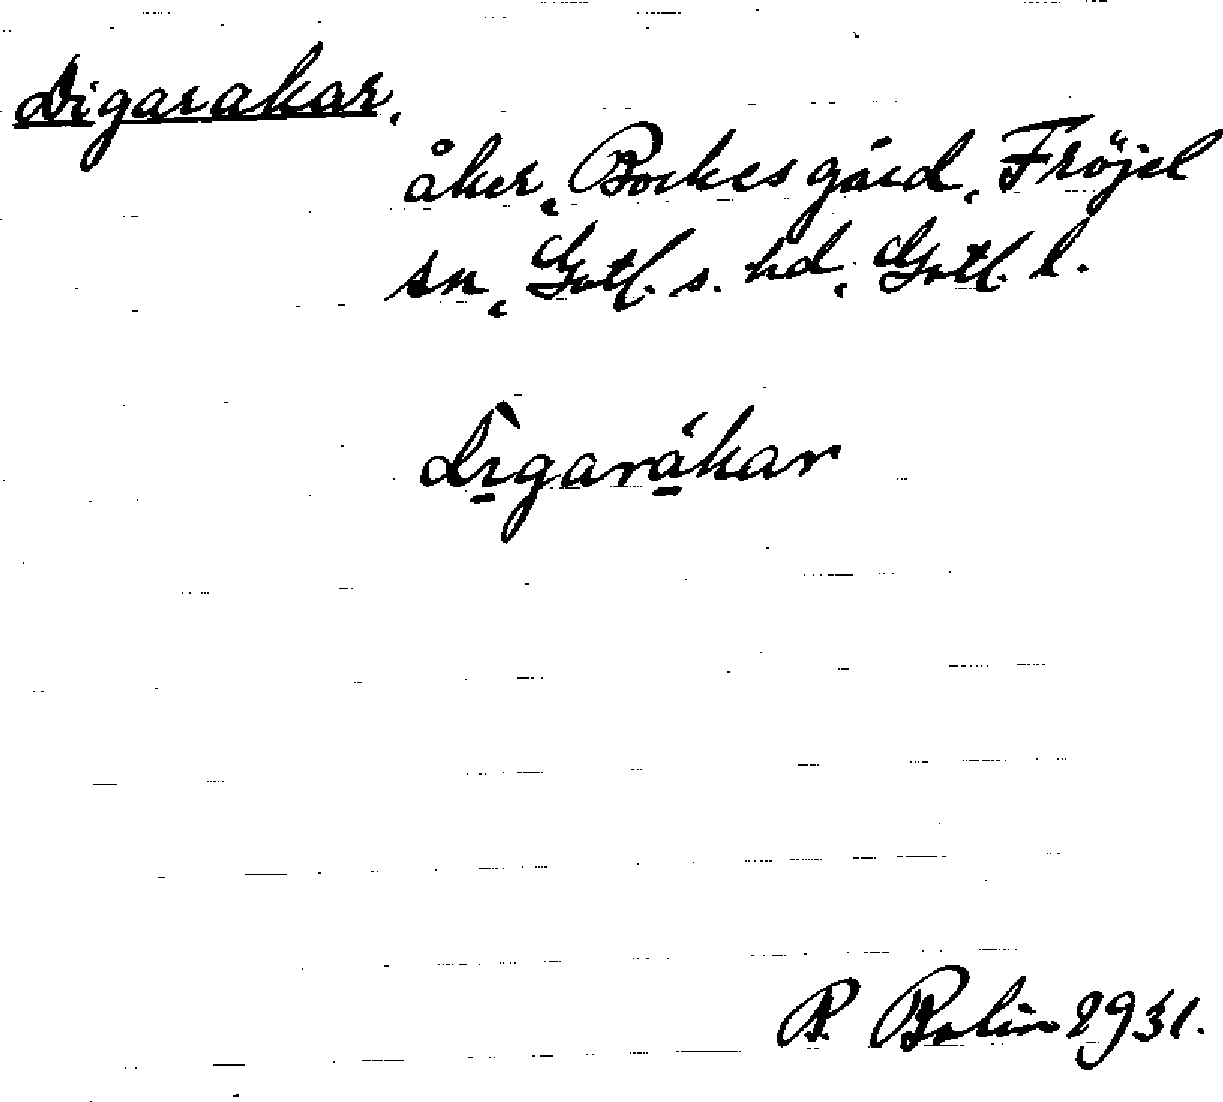 Digarakar,
åker, Bockes gård, Fröjel
sn, Gotl. s. hd, Gotl. l.
dìgarákar
R. Bolin 1931.